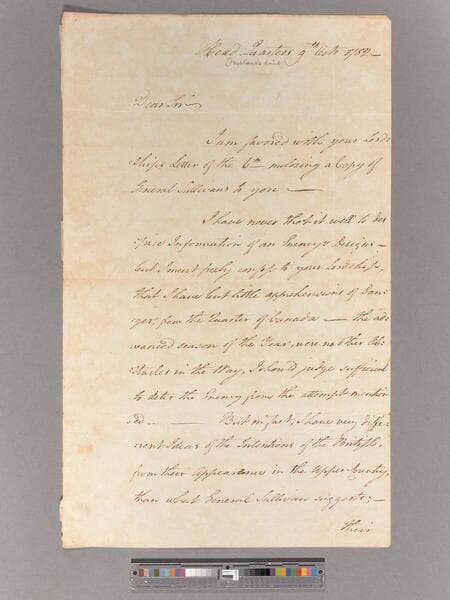 Head Quarters 9th Octo 1782.—
(Verplanks Point)
Dear Sir
I am favored with your Lord-
ships Letter of the 6th inclosing a Copy of
General Sullivans to you —
I have never tho't it well to des-
pise Information of an Enemys Designs —
but I must freely confess to your Lordship,
that I have but little apprehensions of Dan-
ger, from the Quarter of Canada — the ad-
vanced season of the Year, were no other Ob-
stacles in the Way, I should judge sufficient
to deter the Enemy from the attempt mention-
ed — — But in fact, I have very diffe-
rent Ideas of the Intentions of the British,
from their appearance in the upper Country,
than what General Sullivan suggests; —
their